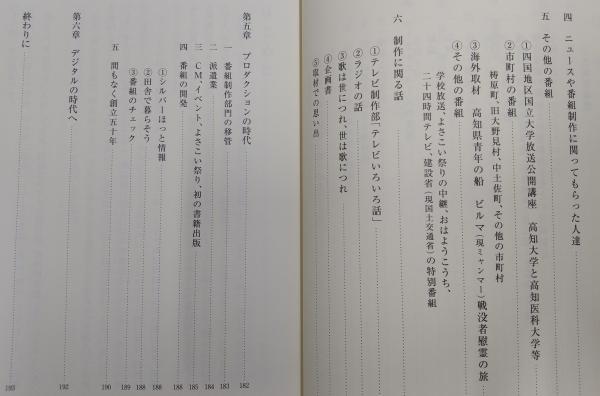 四 ニュースや番組制作に関ってもらった人達
五 その他の番組
①四国地区国立大学放送公開講座 高知大学と高知医科大学等
②市町村の番組
梼原町、旧大野見村、中土佐町、その他の市町村
③海外取材 高知県青年の船 ビルマ(現ミャンマー)戦没者慰霊の旅
④その他の番組
学校放送、よさこい祭りの中継、おはようこうち、
二十四時間テレビ、建設省(現国土交通省)の特別番組
六 制作に関る話
①テレビ制作部「テレビいろいろ話」
②ラジオの話
③歌は世につれ、世は歌につれ
④企画書
⑤取材での思い出
第五章 プロダクションの時代 182
一 番組制作部門の移管 183
二 派遣業 184
三 CM、イベント、よさこい祭り、初の書籍出版 185
四 番組の開発 188
①シルバーほっと情報 188
②田舎で暮らそう 188
③番組のチェック 189
五 間もなく創立五十年 190
第六章 デジタルの時代へ 192
終わりに 193